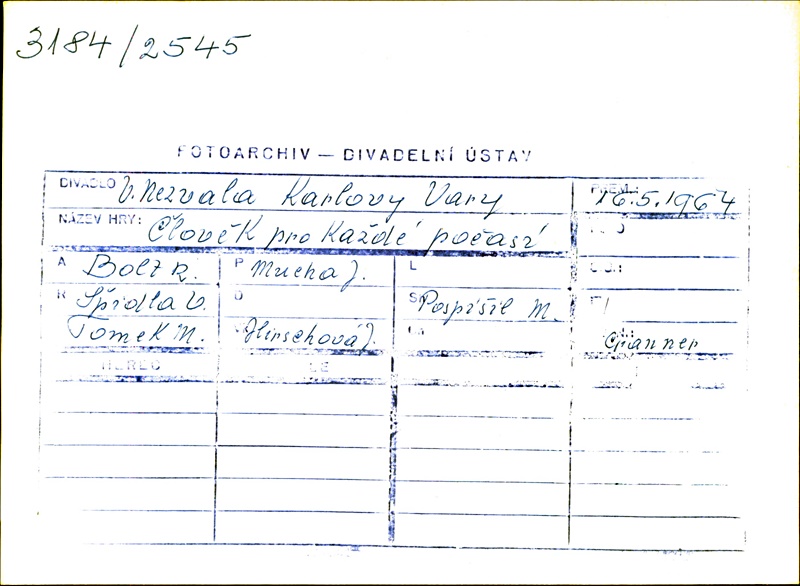 3184/2545
FOTOARCHIV — DIVADELNÍ ÚSTAV
DIVADLO V. Nezvala Karlovy Vary PREM.: 16.5.1967
NÁZEV HRY: Člověk pro každé počasí
A Bolt R. P Mucha J. L
R Špidla V. D Pospíšil M.
Tomek M. Hirschová J. Granner
HEREC